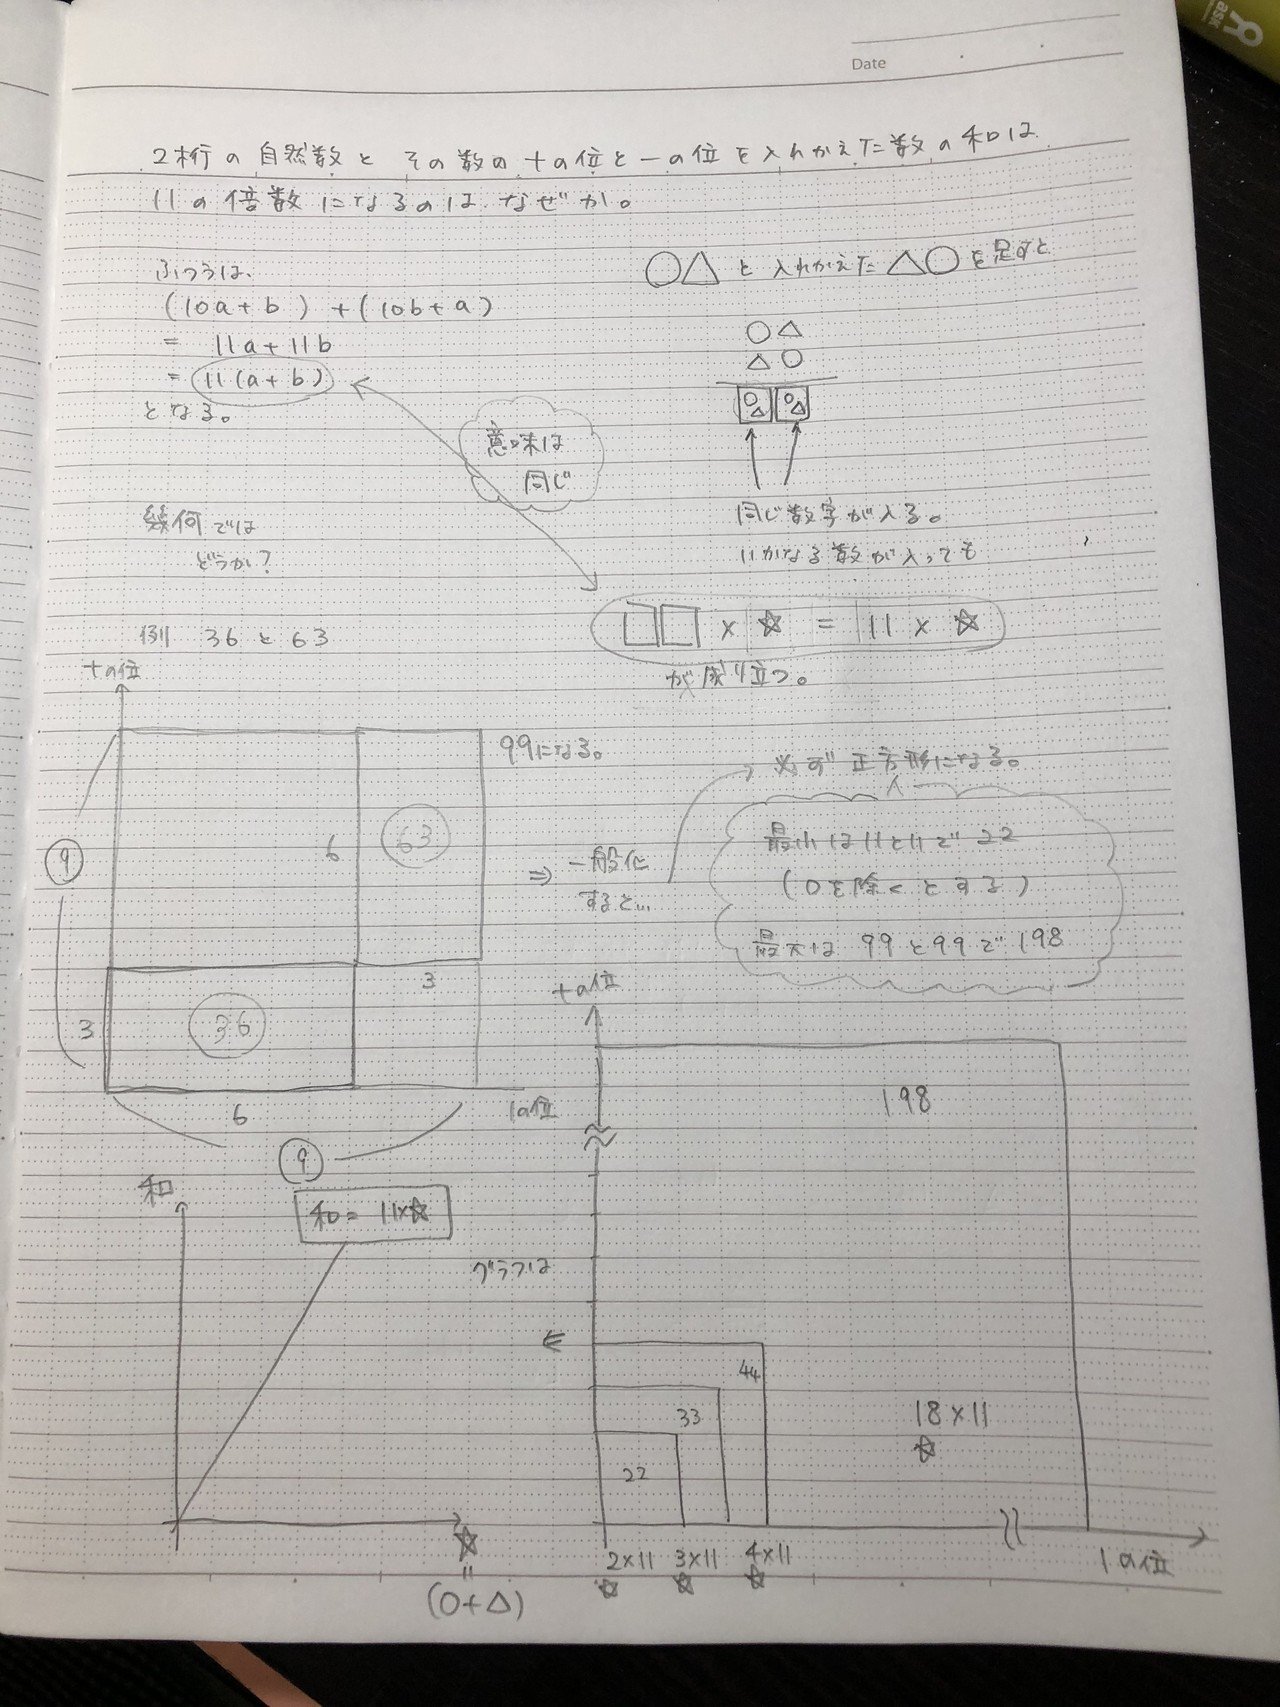 Date
2桁の自然数と その数の十の位と一の位を入れかえた数の和は
11の倍数になるのは なぜか。
ふつうは、
(10a+b)+(10b+a)
= 11a+11b
= 11(a+b)
となる。
○△と入れかえた△○を足すと
○△
△○
○△ ○△
同じ数字が入る。
いかなる数が入っても
意味は
同じ
□□×☆=11×☆
が成り立つ。
幾何では
どうか?
例 36と63
十の位
99になる。
9
6
63
3
3
36
6
1の位
9
⇒一般化
すると…
必ず正方形になる。
最小は11と11で22
(0を除くとする)
最大は 99と99で198
十の位
198
44
33
22
18×11
☆
2×11
☆
3×11
☆
4×11
☆
1の位
グラフは
和
和=11×☆
☆
=
(○+△)